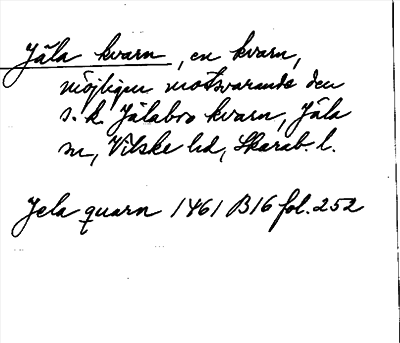 Jäla kvarn, en kvarn,
möjligen motsvarande den
s. k. Jälabro kvarn, Jäla
sn, Vilske hd, Skarab. l.
Jela quarn 1461 B16 fol. 252